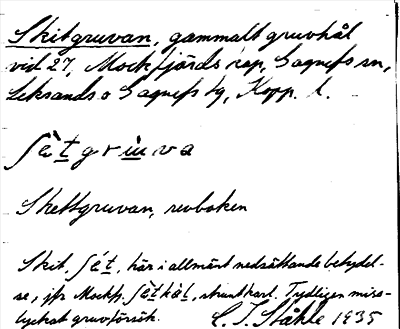 Skitgruvan, gammalt gruvhål
vid 27, Mockfjärds kap, Gagnefs sn,
Leksands o Gagnefs tg, Kopp. l.
ʃètgrùva
Skettgruvan, revboken
Skit, ʃét, här i allmänt nedsättande betydel-
se, jfr Mockfj. ʃètkàt, struntkarl. Tydligen miss-
lyckat gruvförsök. C. I. Ståhle 1935